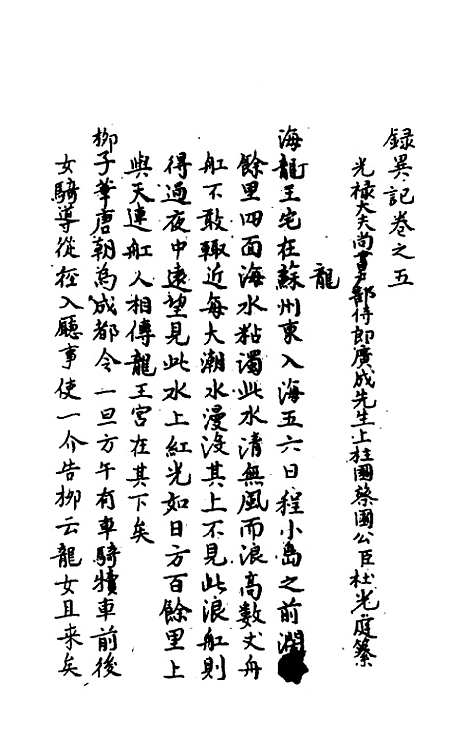 錄異記卷之五
光祿大夫尚書戶部侍郎廣成先生上柱國蔡國公臣杜光庭纂
龍
海龍王宅在蘇州東入海五六日程小島之前濶
餘里四面海水粘濁此水清無風而浪高數丈舟
舡不敢輒近每大潮水漫沒其上不見此浪舡則
得過夜中遠望見此水上紅光如日方百餘里上
與天連舡人相傳龍王宮在其下矣
柳子華唐朝為成都令一旦方午有車騎犢車前後
女騎導從徑入廳事使一介告柳云龍女且來矣